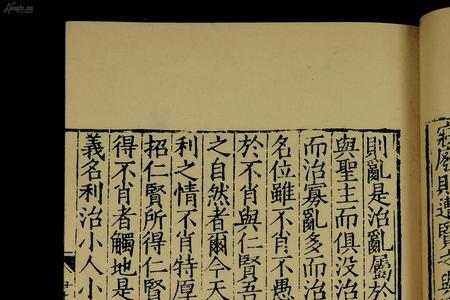 廢則遭賢之與
則亂是治亂屬於
與聖主而俱沒治
而治寡亂多而治
名位雖不肖不愚
於不肖與仁賢吾
之自然者爾今天
利之情不肖特厚
招仁賢所得仁賢
得不肖者觸地是
義名利治小人小